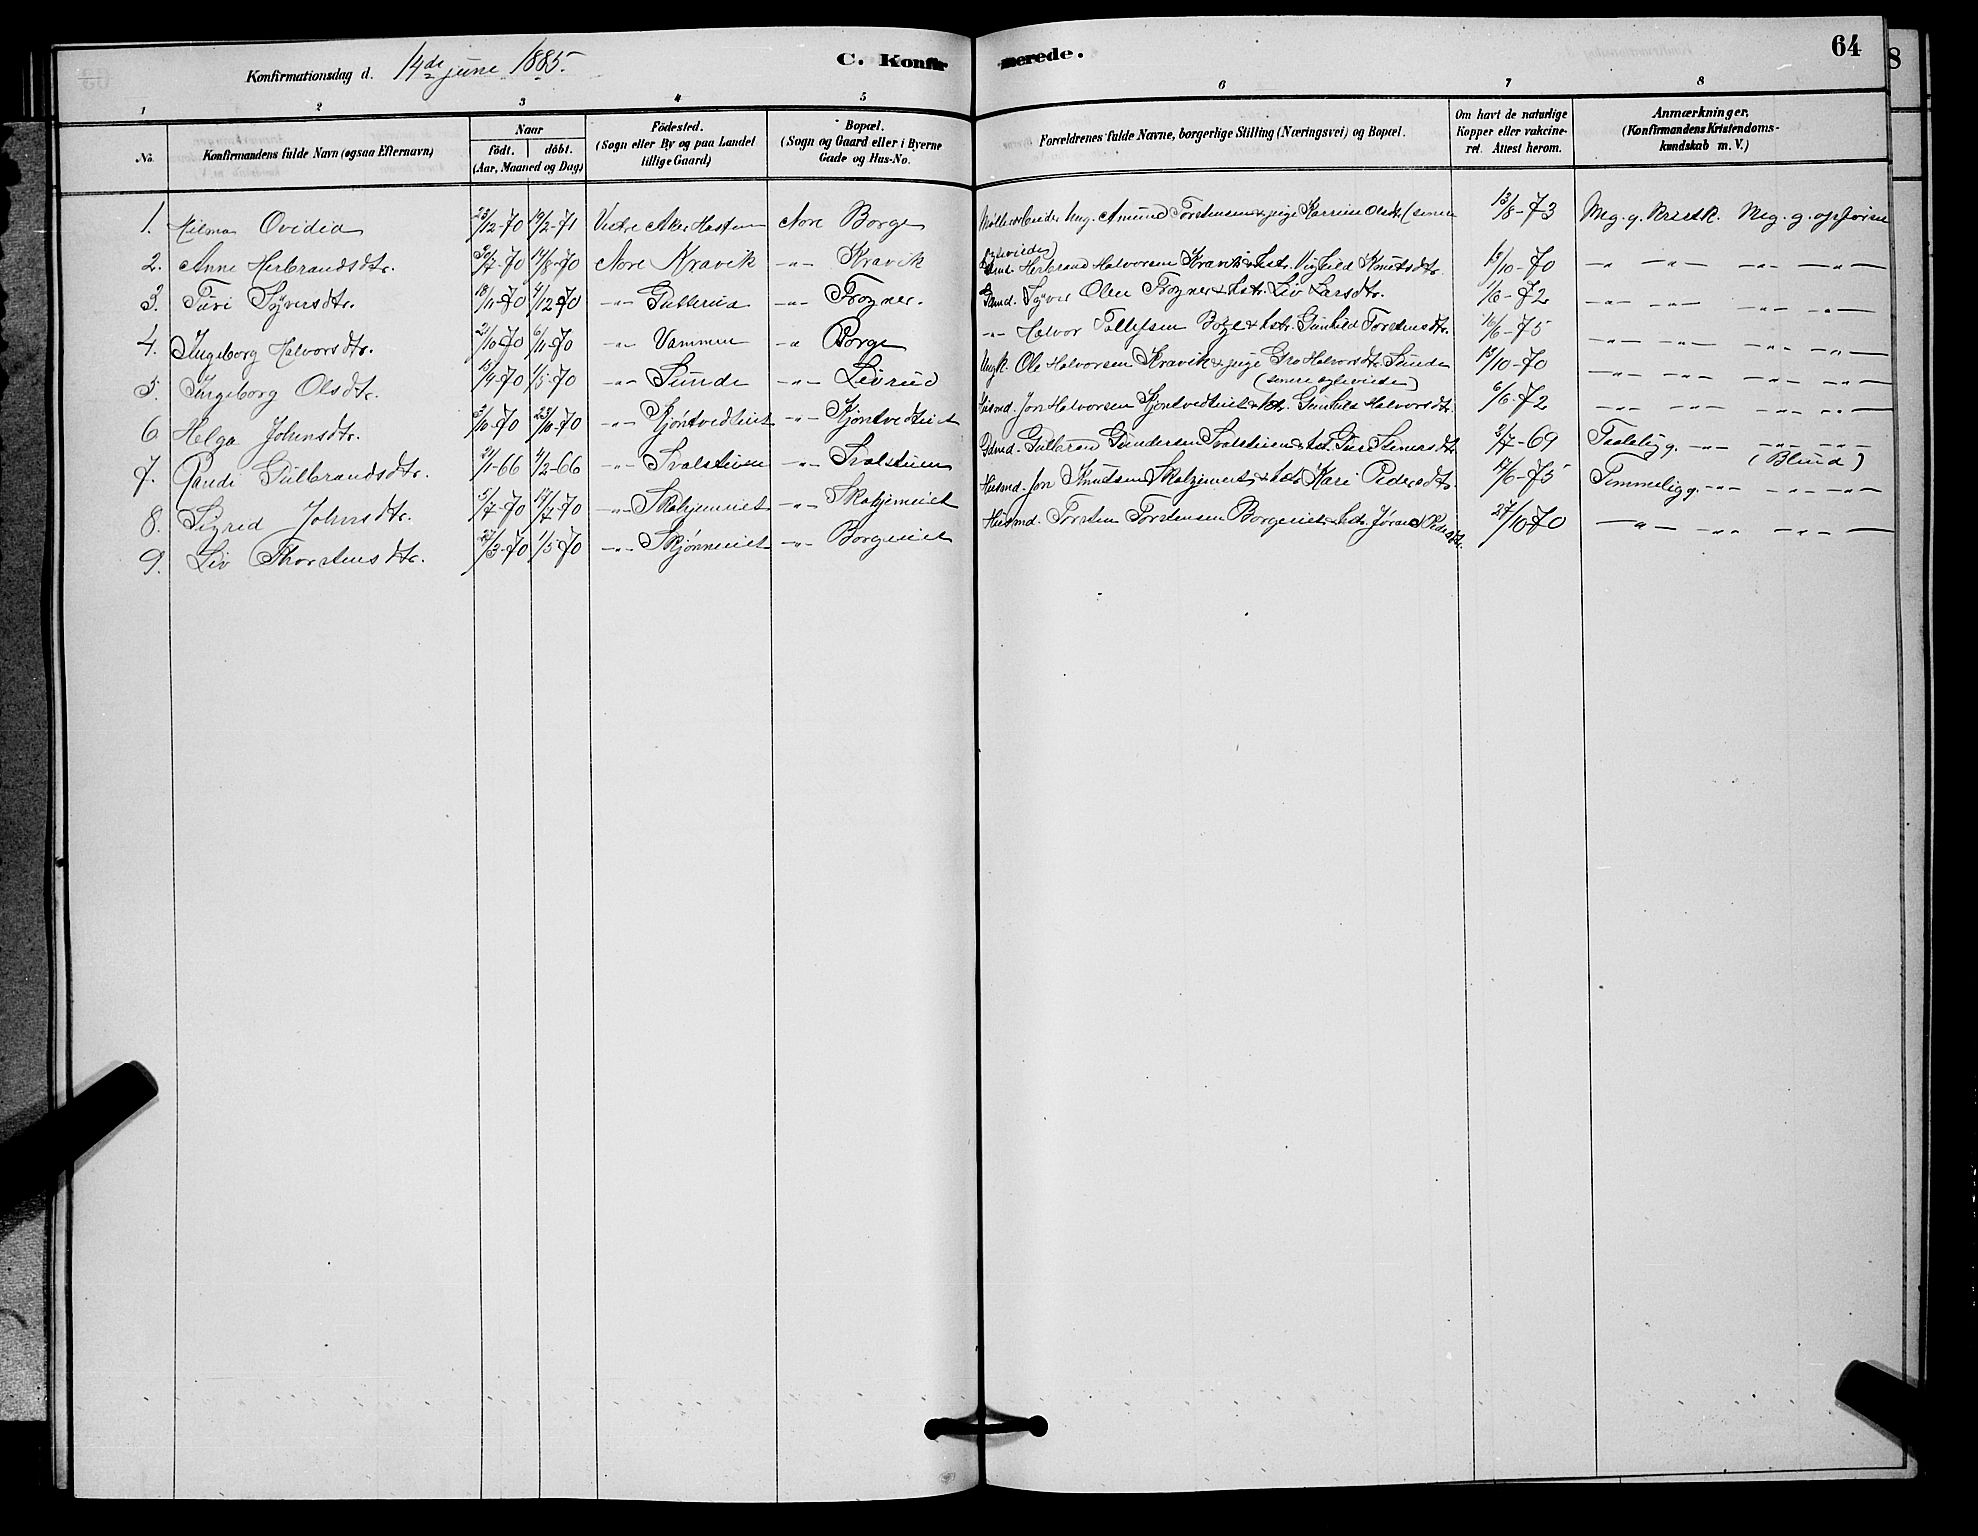 Konfirmationsdag d. 14de june 1885.
C. Konfirmerede.
64
1 2 3 4 5 6 7 8
No.
Konfirmandens fulde Navn (ogsaa Efternavn)
Naar
födt. döbt.
(Aar, Maaned og Dag)
Födested.
(Sogn eller By og paa Landet
tillige Gaard)
Bopæl.
(Sogn og Gaard eller i Byerne
Gade og Hus-No.
Forældrenes fulde Navne, borgerlige Stilling (Næringsvei) og Bopæl.
Om havt de naturlige
Kopper eller vakcine-
ret. Attest herom.
Anmærkninger.
(Konfirmandens Kristendoms-
kundskab m. V.)
1. Hilma Ovidia 23/12-70 19/2-71 Vestre Aker Nore Borge Ung. Amund Torstensen & pige Karrine Olsdtr. (senere 13/8-73 Meg. g. Kristk. Meg. g. opførsel
egteviede)
2. Anne Herbrandsdtr. 30/7-70 14/8-70 Nore Kravik -"- Kravik Herbrand Halvorsen Kravik & hstr. Vighild Knutsdtr. 13/10-70 -"- -"- -"- -"-
3. Turi Syversdtr. 18/11-70 4/12-70 -"- Gulterud -"- Frogner. Gaard. Syver Olsen Frogner & hstr. Liv Larsdtr. 1/6-72 -"- -"- -"- -"-
4. Ingeborg Halvorsdtr. 21/10-70 6/11-70 -"- Vammen -"- Borge -"- Halvor Tollefsen Borge & hstr. Gunhild Torstensdtr. 16/6-75 -"- -"- -"- -"-
5. Ingeborg Olsdtr. 13/4-70 1/5-70 -"- Sunde -"- Livrud Ungk. Ole Halvorsen Kravik & pige Gro Halvorsdtr. Sunde 13/10-70 -"- -"- -"- -"-
(senere egteviede)
6 Helga Johnsdtr. 3/10-70 23/10-70 -"- Kjøntvedteiet -"- Kjøntvedteiet Husmd. Jon Halvorsen Kjøntvedteiet & hstr. Gunhild Halvorsdtr. 6/6-72 -"- -"- -"- -"-
7. Randi Gulbrandsdtr. 21/11-66 4/2-66 -"- Svalstuen -"- Svalstuen Gulbrand Gundersen Svalstuen & hst. Guri Steinersdtr. 2/7-69 Taalelig g. -"- -"- -"-
(Blind)
8. Sigrid Johnsdtr. 5/7-70 17/7-70 -"- Skalzemeiet -"- Skalzemeiet Husmd. Jon Knutsen Skalzemeiet & hstr. Kari Pedersdtr. 17/6-75 Temmelig g. -"- -"- -"-
9. Liv Thorstensdtr. 27/3-70 1/5-70 -"- Skjønneeiet -"- Borgeeiet Husmd. Torsten Torstensen Borgeeiet & hstr. Jørand Pedersdtr. 27/10-70 -"- -"- -"- -"-